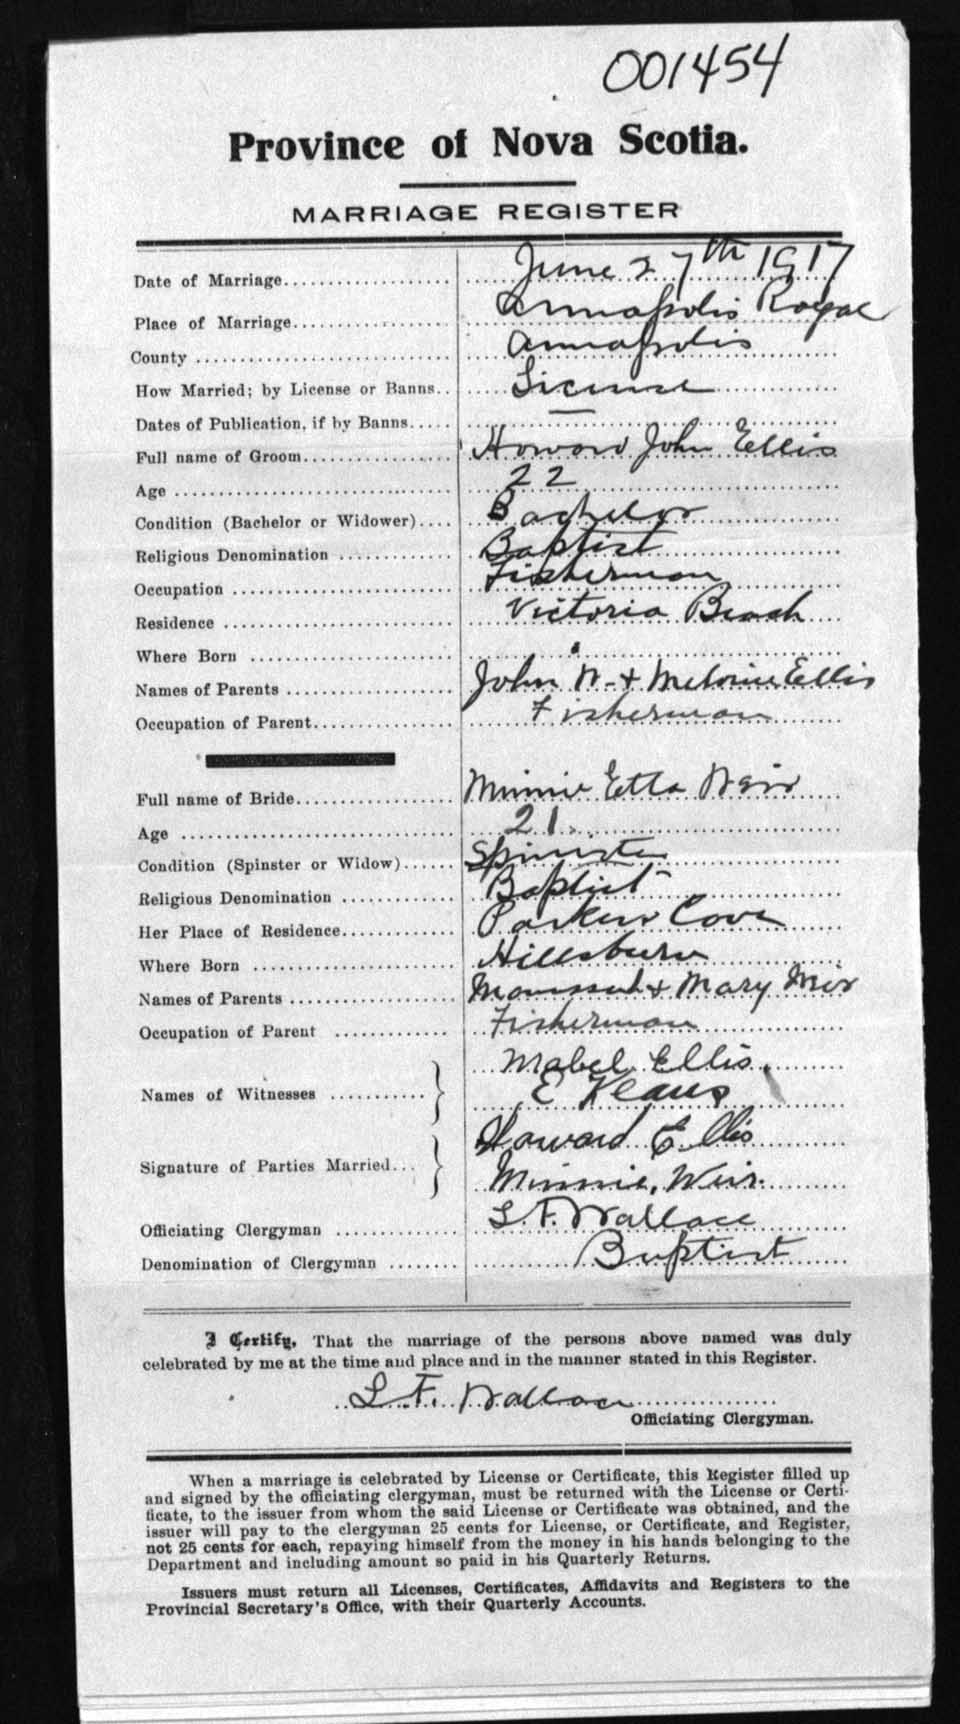 001454
Province of Nova Scotia.
MARRIAGE REGISTER
Date of Marriage.................... June 27th 1917
Place of Marriage................... Annapolis Royal
County .............................. Annapolis
How Married; by License or Banns.. License
Dates of Publication, if by Banns..... —
Full name of Groom.................. Howard John Ellis
Age .................................. 22
Condition (Bachelor or Widower).... Bachelor
Religious Denomination ............. Baptist
Occupation .......................... Fisherman
Residence ........................... Victoria Beach
Where Born ......................... "
Names of Parents ................... John W. + Ellis
Occupation of Parent................ Fisherman
Full name of Bride.................. Minnie Etta Weir
Age ................................. 21.
Condition (Spinster or Widow)...... Spinster
Religious Denomination ............ Baptist
Her Place of Residence............. Parkers Cove
Where Born ........................ Hillsburn
Names of Parents .................. + Mary Weir
Occupation of Parent .............. Fisherman
Mabel Ellis.
Names of Witnesses ............ E Klaus
Howard Ellis
Signature of Parties Married...
Minnie, Weir.
Officiating Clergyman ............... L. F. Wallace
Denomination of Clergyman ........ Baptist
I Certify, That the marriage of the persons above named was duly
celebrated by me at the time and place and in the manner stated in this Register.
L. F. Wallace
Officiating Clergyman.
When a marriage is celebrated by License or Certificate, this Register filled up
and signed by the officiating clergyman, must be returned with the License or Certi-
ficate, to the issuer from whom the said License or Certificate was obtained, and the
issuer will pay to the clergyman 25 cents for License, or Certificate, and Register,
not 25 cents for each, repaying himself from the money in his hands belonging to the
Department and including amount so paid in his Quarterly Returns.
Issuers must return all Licenses, Certificates, Affidavits and Registers to the
Provincial Secretary's Office, with their Quarterly Accounts.